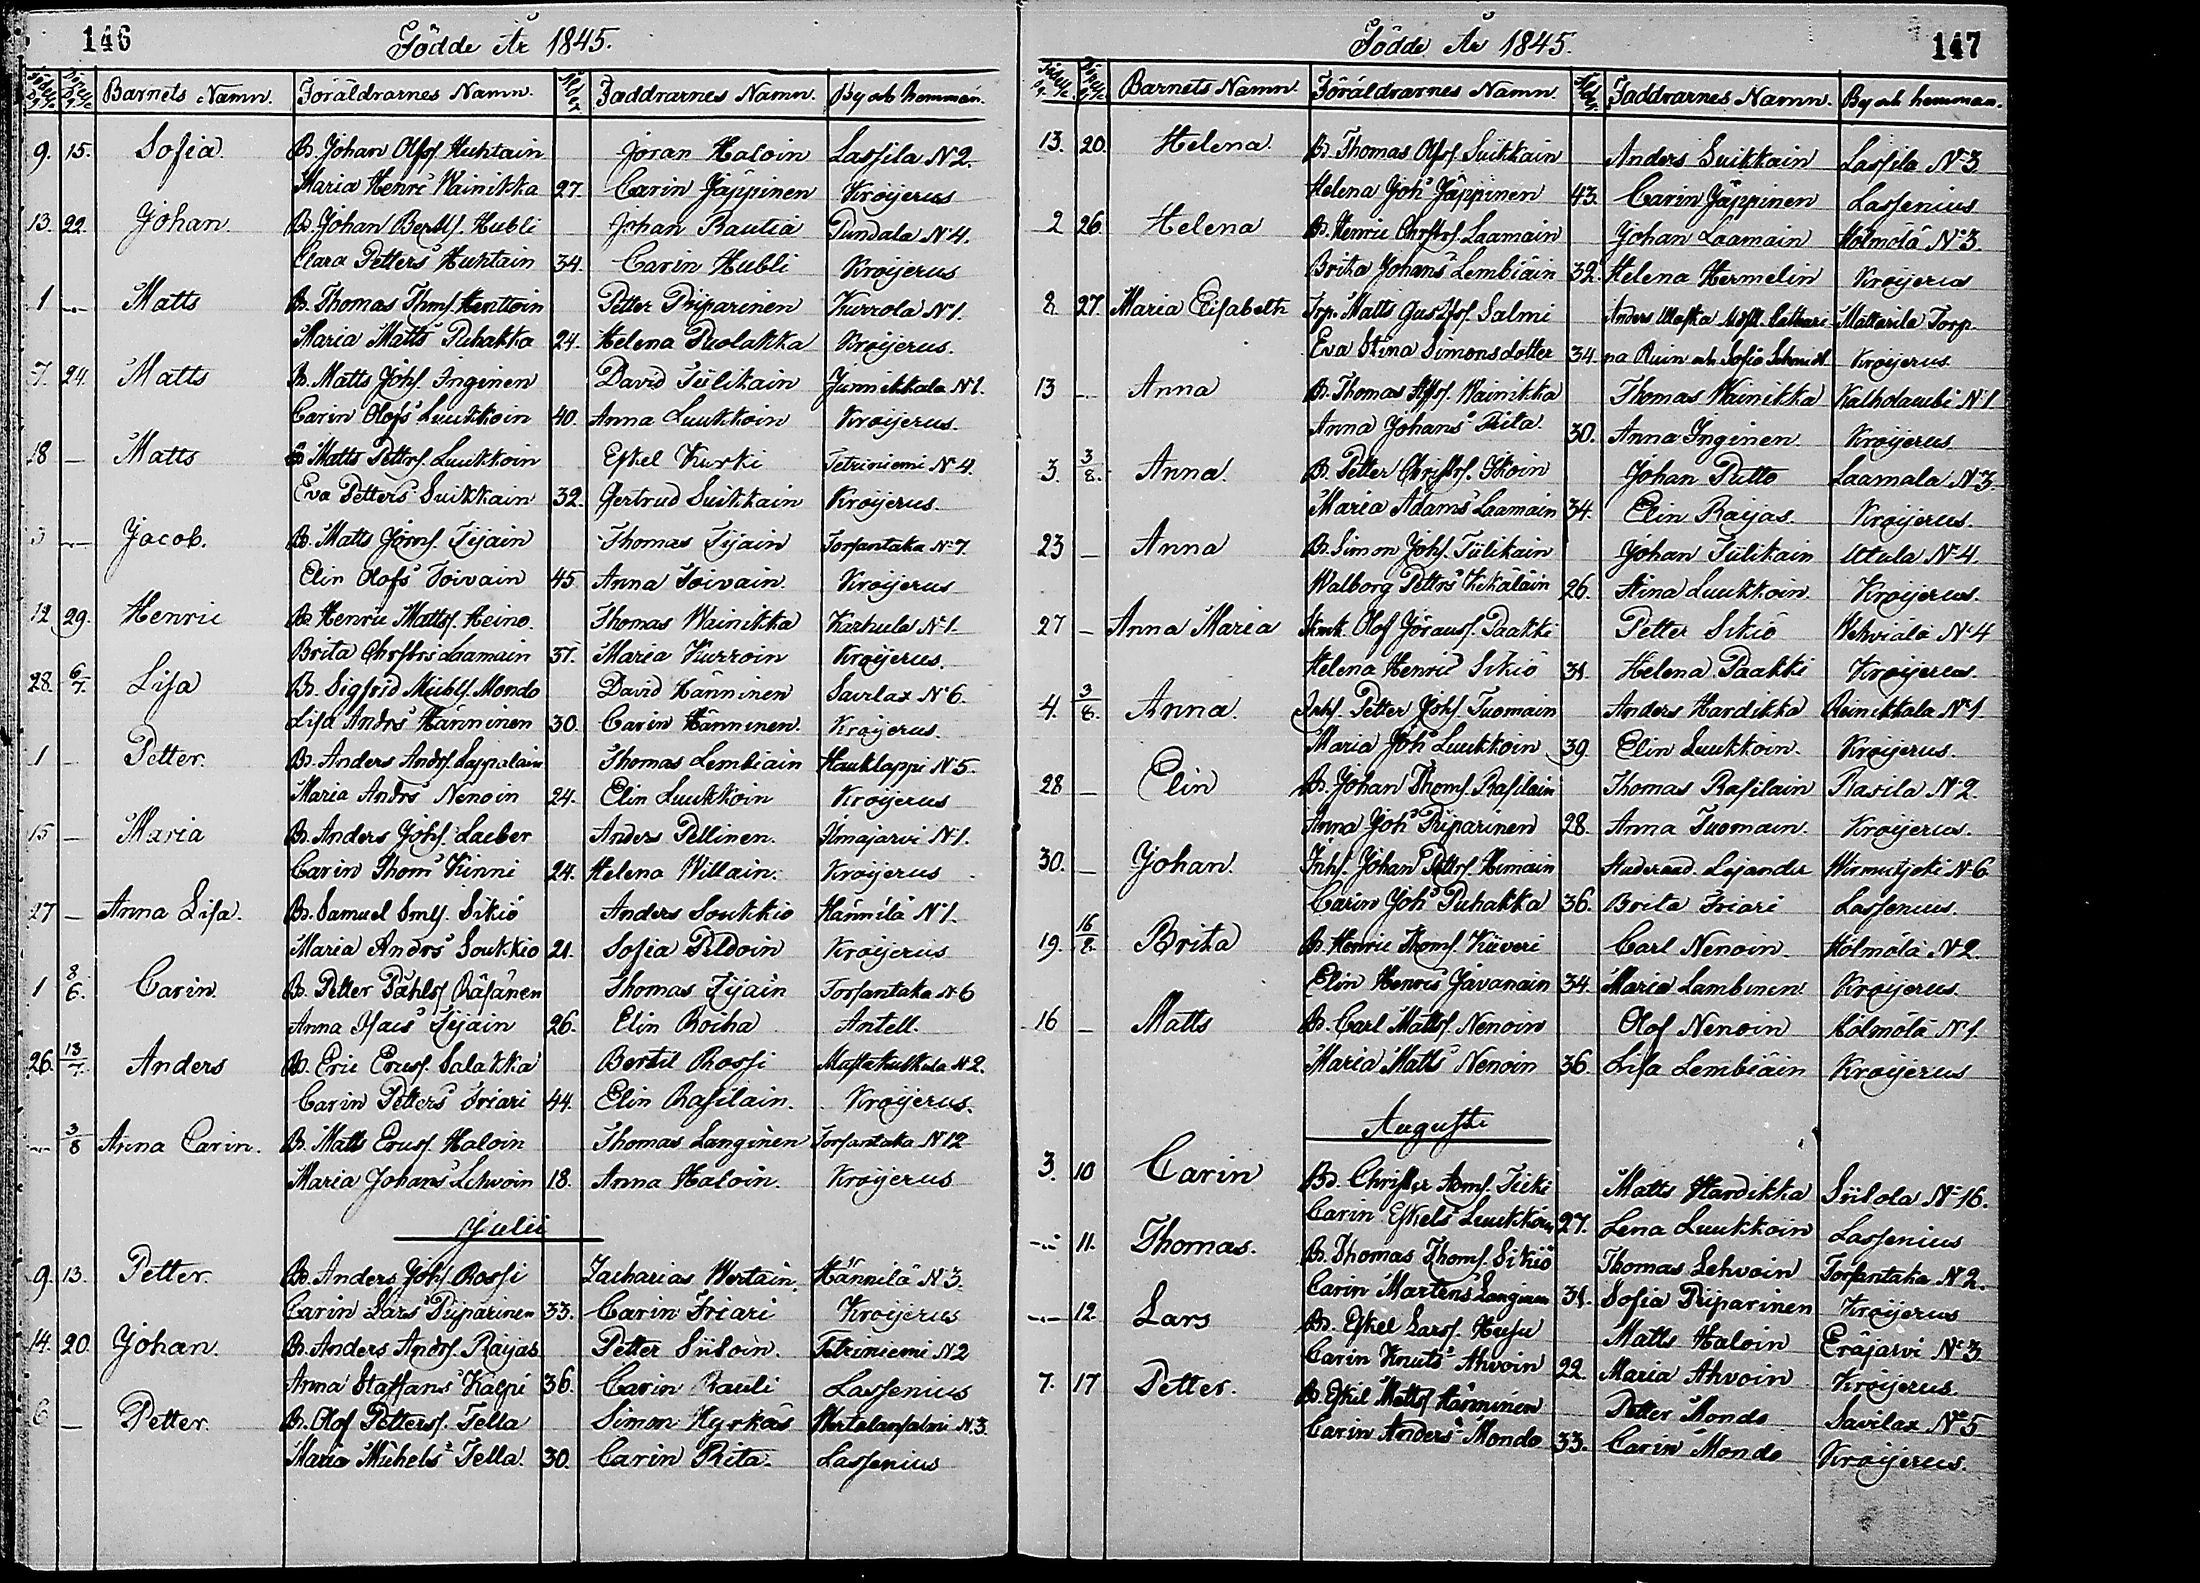 146 Födde År 1845.
Födelse D. Döpelse D. Barnets Namn. Föräldrarnes Namn. Ålder. Faddrarnes Namn. By och hemman.
9. 15. Sofia B. Johan Olfsf. Huhtain Jöran Haloin Lassila N 2.
Maria Henrs Wainikka 27. Carin Jäppinen Kröijerus
13. 22. Johan B. Johan Bertlsf. Hubli Johan Rautia Pundala N 4.
Clara Petters Huhtain 34. Carin Hubli Kröijerus
1 — Matts B. Thomas Thmsf. Henttoin Petter Piiparinen Kurrola N 1.
Maria Matts Puhakka 24. Helena Puolakka Kröijerus.
7. 24. Matts B. Matts Johsf. Inginen David Tiilikain Junnikkala N 1.
Carin Olofs Luukkoin 40. Anna Luukkoin Kröijerus.
18 — Matts B. Matts Pettrsf. Luukkoin Eskel Kurki Tetriniemi N 4.
Eva Petters Suikkain 32. Gertrud Suikkain Kröijerus.
3 — Jacob. B. Matts Jörnsf. Tijain Thomas Tijain Torsantaka N 7.
Elin Olofs Toivain 45 Anna Toivain Kröijerus
12 29. Henric B. Henric Mattsf. Heino. Thomas Wainikka Karhula N 1.
Brita Chrsters Laamain 37. Maria Kurroin Kröijerus.
28. 6/7. Lisa B. Sigfrid Michlsf. Mondo David Hänninen Savilax N 6.
Lisa Andrs Hänninen 30. Carin Hänninen. Kröijerus.
1 — Petter. B. Anders Andrsf. Lappalain Thomas Lembiäin Hauklappi N 5.
Maria Andrs Nenoin 24. Elin Luukkoin Kröijerus
15 — Maria B. Anders Johsf. Laeber Anders Pellinen. Ilmajarvi N 1.
Carin Thoms Kinni 24. Helena Willain. Kröijerus
27 — Anna Lisa. B. Samuel Smlsf. Sikiö Anders Soukkio Hännilä N 1.
Maria Andrs Soukkio 21. Sofia Peldoin Kröijerus
1 8/6. Carin B. Petter Påhlsf. Räsänen Thomas Tijäin Torsantaka N 6
Anna Isacs Tijain 26. Elin Roiha Antell.
26. 13/7. Anders B. Eric Ericsf. Salakka Bertil Rossi Mustakulkula N 2.
Carin Petters Friari 44. Elin Rasilain. Kröijerus.
— 3/8 Anna Carin. B. Matts Ericsf. Haloin Thomas Langinen Torsantaka N 12
Maria Johans Lehvoin 18. Anna Haloin Kröijerus
Julii
9. 13. Petter. B. Anders Johsf. Rossi Zacharias Wertain. Hännilä N 3.
Carin Lars Piiparinen 33. Carin Friari Kröijerus
14. 20. Johan. B. Anders Andrsf. Raijas Petter Siiloin. Tetriniemi N 2
Anna Staffans Kälpi 36. Carin Rauli Lassenius
6 — Petter. B. Olof Pettersf. Tella Simon Hyrkäs Mertalansalmi N. 3
Maria Michels Tella. 30. Carin Rita. Lassenius
Födde År 1845. 147
Barnets Namn. Föräldrarnes Namn. Ålder. Faddrarnes Namn. By och hemman.
13. 20. Helena. B. Thomas Olfsf. Suikkain Anders Suikkain Lassila N 3
Helena Johs Jäppinen 43. Carin Jäppinen Lassenius
2 26. Helena B. Henric Chrstrsf. Laamain Johan Laamain Holmölä N 3.
Brita Johans Lembiäin 32. Helena Hermelin Kröijerus
8. 27. Maria Elisabeth Trp. Matts Gustfsf. Salmi Anders Mattarila Torp.
Eva Stina Simonsdotter 34. Ruin och Sofia Schmidt Kröijerus.
13 — Anna B. Thomas Wainikka Thomas Wainikka Kalholambi N 1
Anna Johans Rita. 30. Anna Inginen Kröijerus
3. 3/8. Anna. B. Petter Christrsf. Ikoin Johan Putto Laamala N 3.
Maria Adams Laamain 34. Elin Raijas. Kröijerus.
23 — Anna B. Simon Johsf. Tiilikain Johan Tiilikain Utula N 4.
Walborg Pettrs Kekäläin 26. Stina Luukkoin. Kröijerus.
27 — Anna Maria Olof Jöransf. Paakki Petter Sikiö Wehviälä N 4
Helena Henrs Sikiö 31. Helena Paakki Kröijerus.
4. 3/8. Anna. Inhs. Petter Johsf. Tuomain Anders Hardikka Reinikkala N 1.
Maria Johs Luukkoin 39. Elin Luukkoin. Kröijerus.
28 — Elin B. Johan Thomsf. Rasilain Thomas Rasilain Rasila N 2.
Anna Johs Piiparinen 28. Anna Tuomain. Kröijerus.
30. — Johan. Inhs. Johan Pettrsf. Himain Lejander Wirmutjoki N 6
Carin Johs Puhakka 36. Brita Friari Lassenius.
19. 16/8. Brita B. Henric Thomsf. Kiiveri Carl Nenoin. Holmölä N 2.
Elin Henrics Javanain 34. Maria Lambinen Kröijerus.
16 — Matts B. Carl Mattsf. Nenoin Olof Nenoin Holmölä N 1.
Maria Matts Nenoin 36. Lisa Lembiäin Kröijerus
Augusti
3. 10 Carin B. Christer Tiiki Matts Hardikka Siilola N 16.
Carin Eskels Luukkoin 27. Lena Luukkoin Lassenius
— 11. Thomas. B. Thomas Thomsf. Sikiö Thomas Lehvoin Torsantaka N 2.
Carin Martens Langinen 31. Sofia Piiparinen Kröijerus
— 12. Lars B. Eskel Larsf. Husu Matts Haloin Eräjarvi N 3.
Carin Knuts Ahvoin 22. Maria Ahvoin Kröijerus.
7. 17 Petter. B. Eskil Mattsf. Hänninen Petter Mondo Savilax N 5
Carin Anders Mondo 33. Carin Mondo Kröijerus.